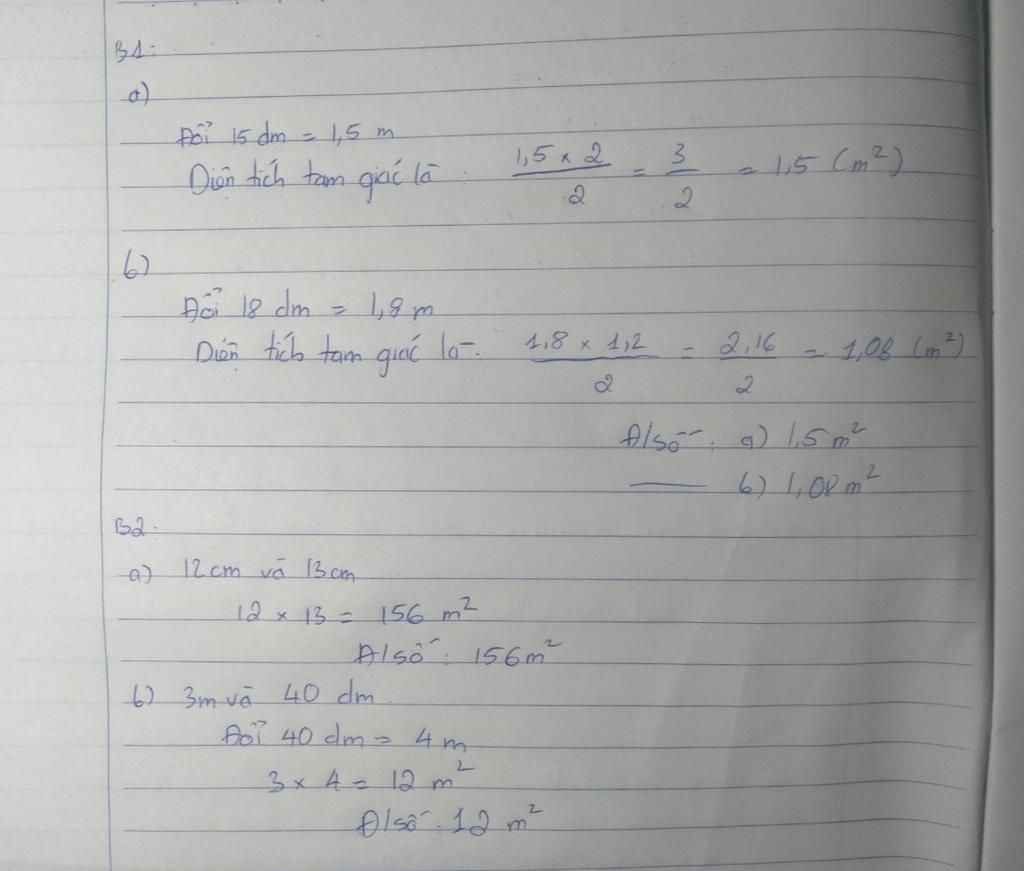 B1:
a)
Đổi 15 dm = 1,5 m
Diện tích tam giác là : 1,5 x 2 / 2 = 3 / 2 = 1,5 (m²)
b)
Đổi 18 dm = 1,8 m
Diện tích tam giác là : 1,8 x 1,2 / 2 = 2,16 / 2 = 1,08 (m²)
Đ/số : a) 1,5 m²
b) 1,08 m²
B2:
a) 12 cm và 13 cm
12 x 13 = 156 m²
Đ/số : 156 m²
b) 3m và 40 dm
Đổi 40 dm = 4 m
3 x 4 = 12 m²
Đ/số : 12 m²